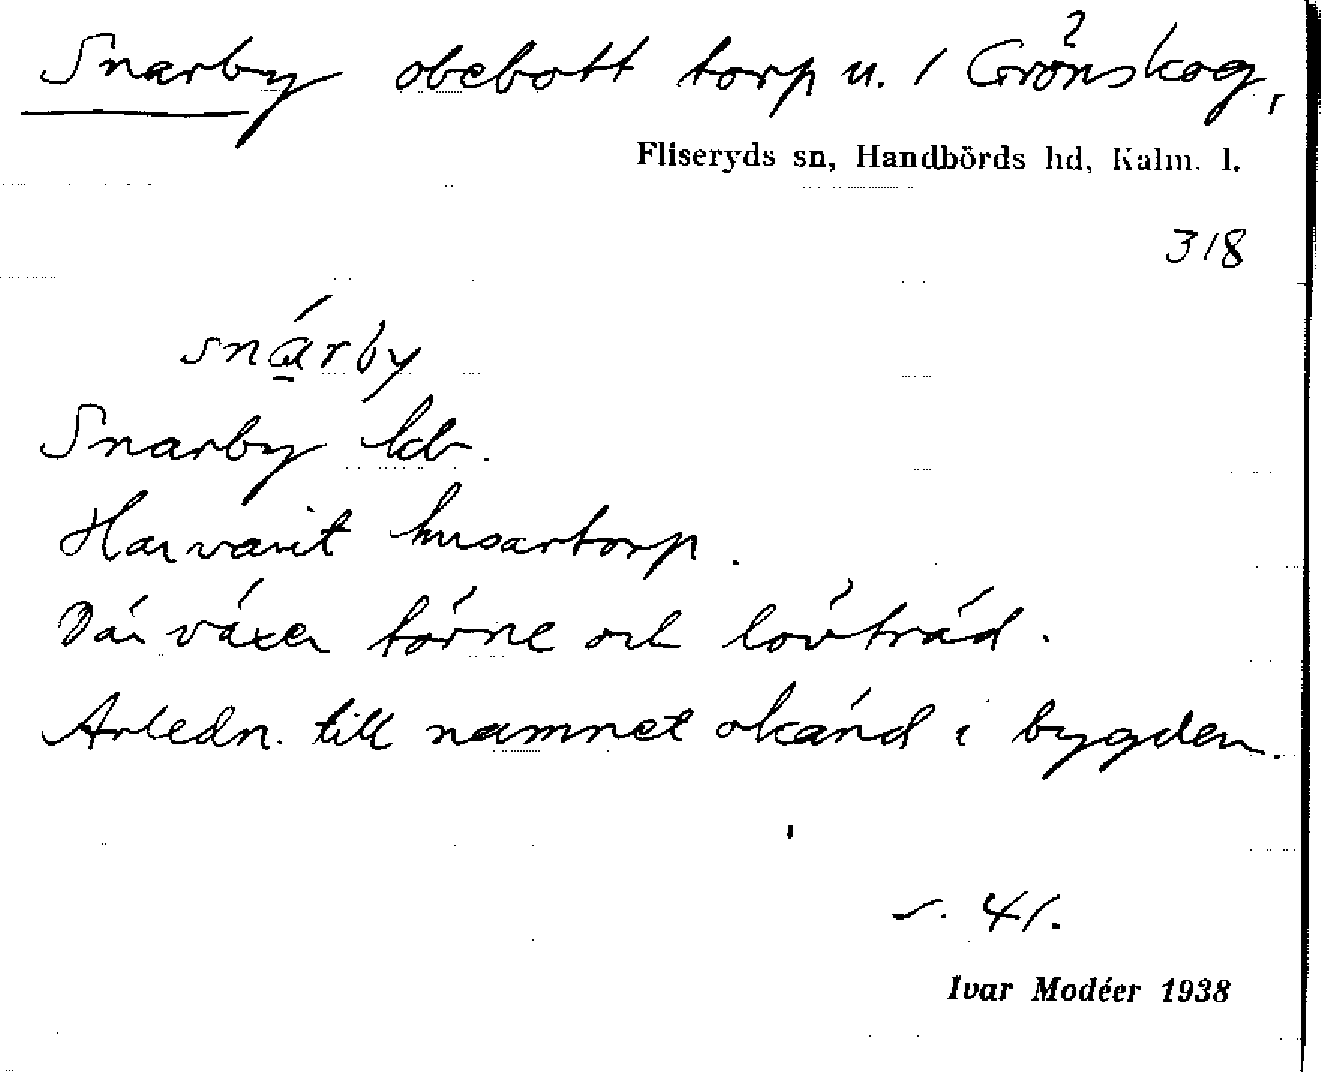 Snarby obebott torp u. 1 Grönskog,
Fliseryds sn, Handbörds hd, Kalm. l.
318
snárby
Snarby ldb.
Har varit husartorp.
Där växer törne och lövträd.
Anledn. till namnet okänd i bygden.
s. 41.
Ivar Modéer 1938